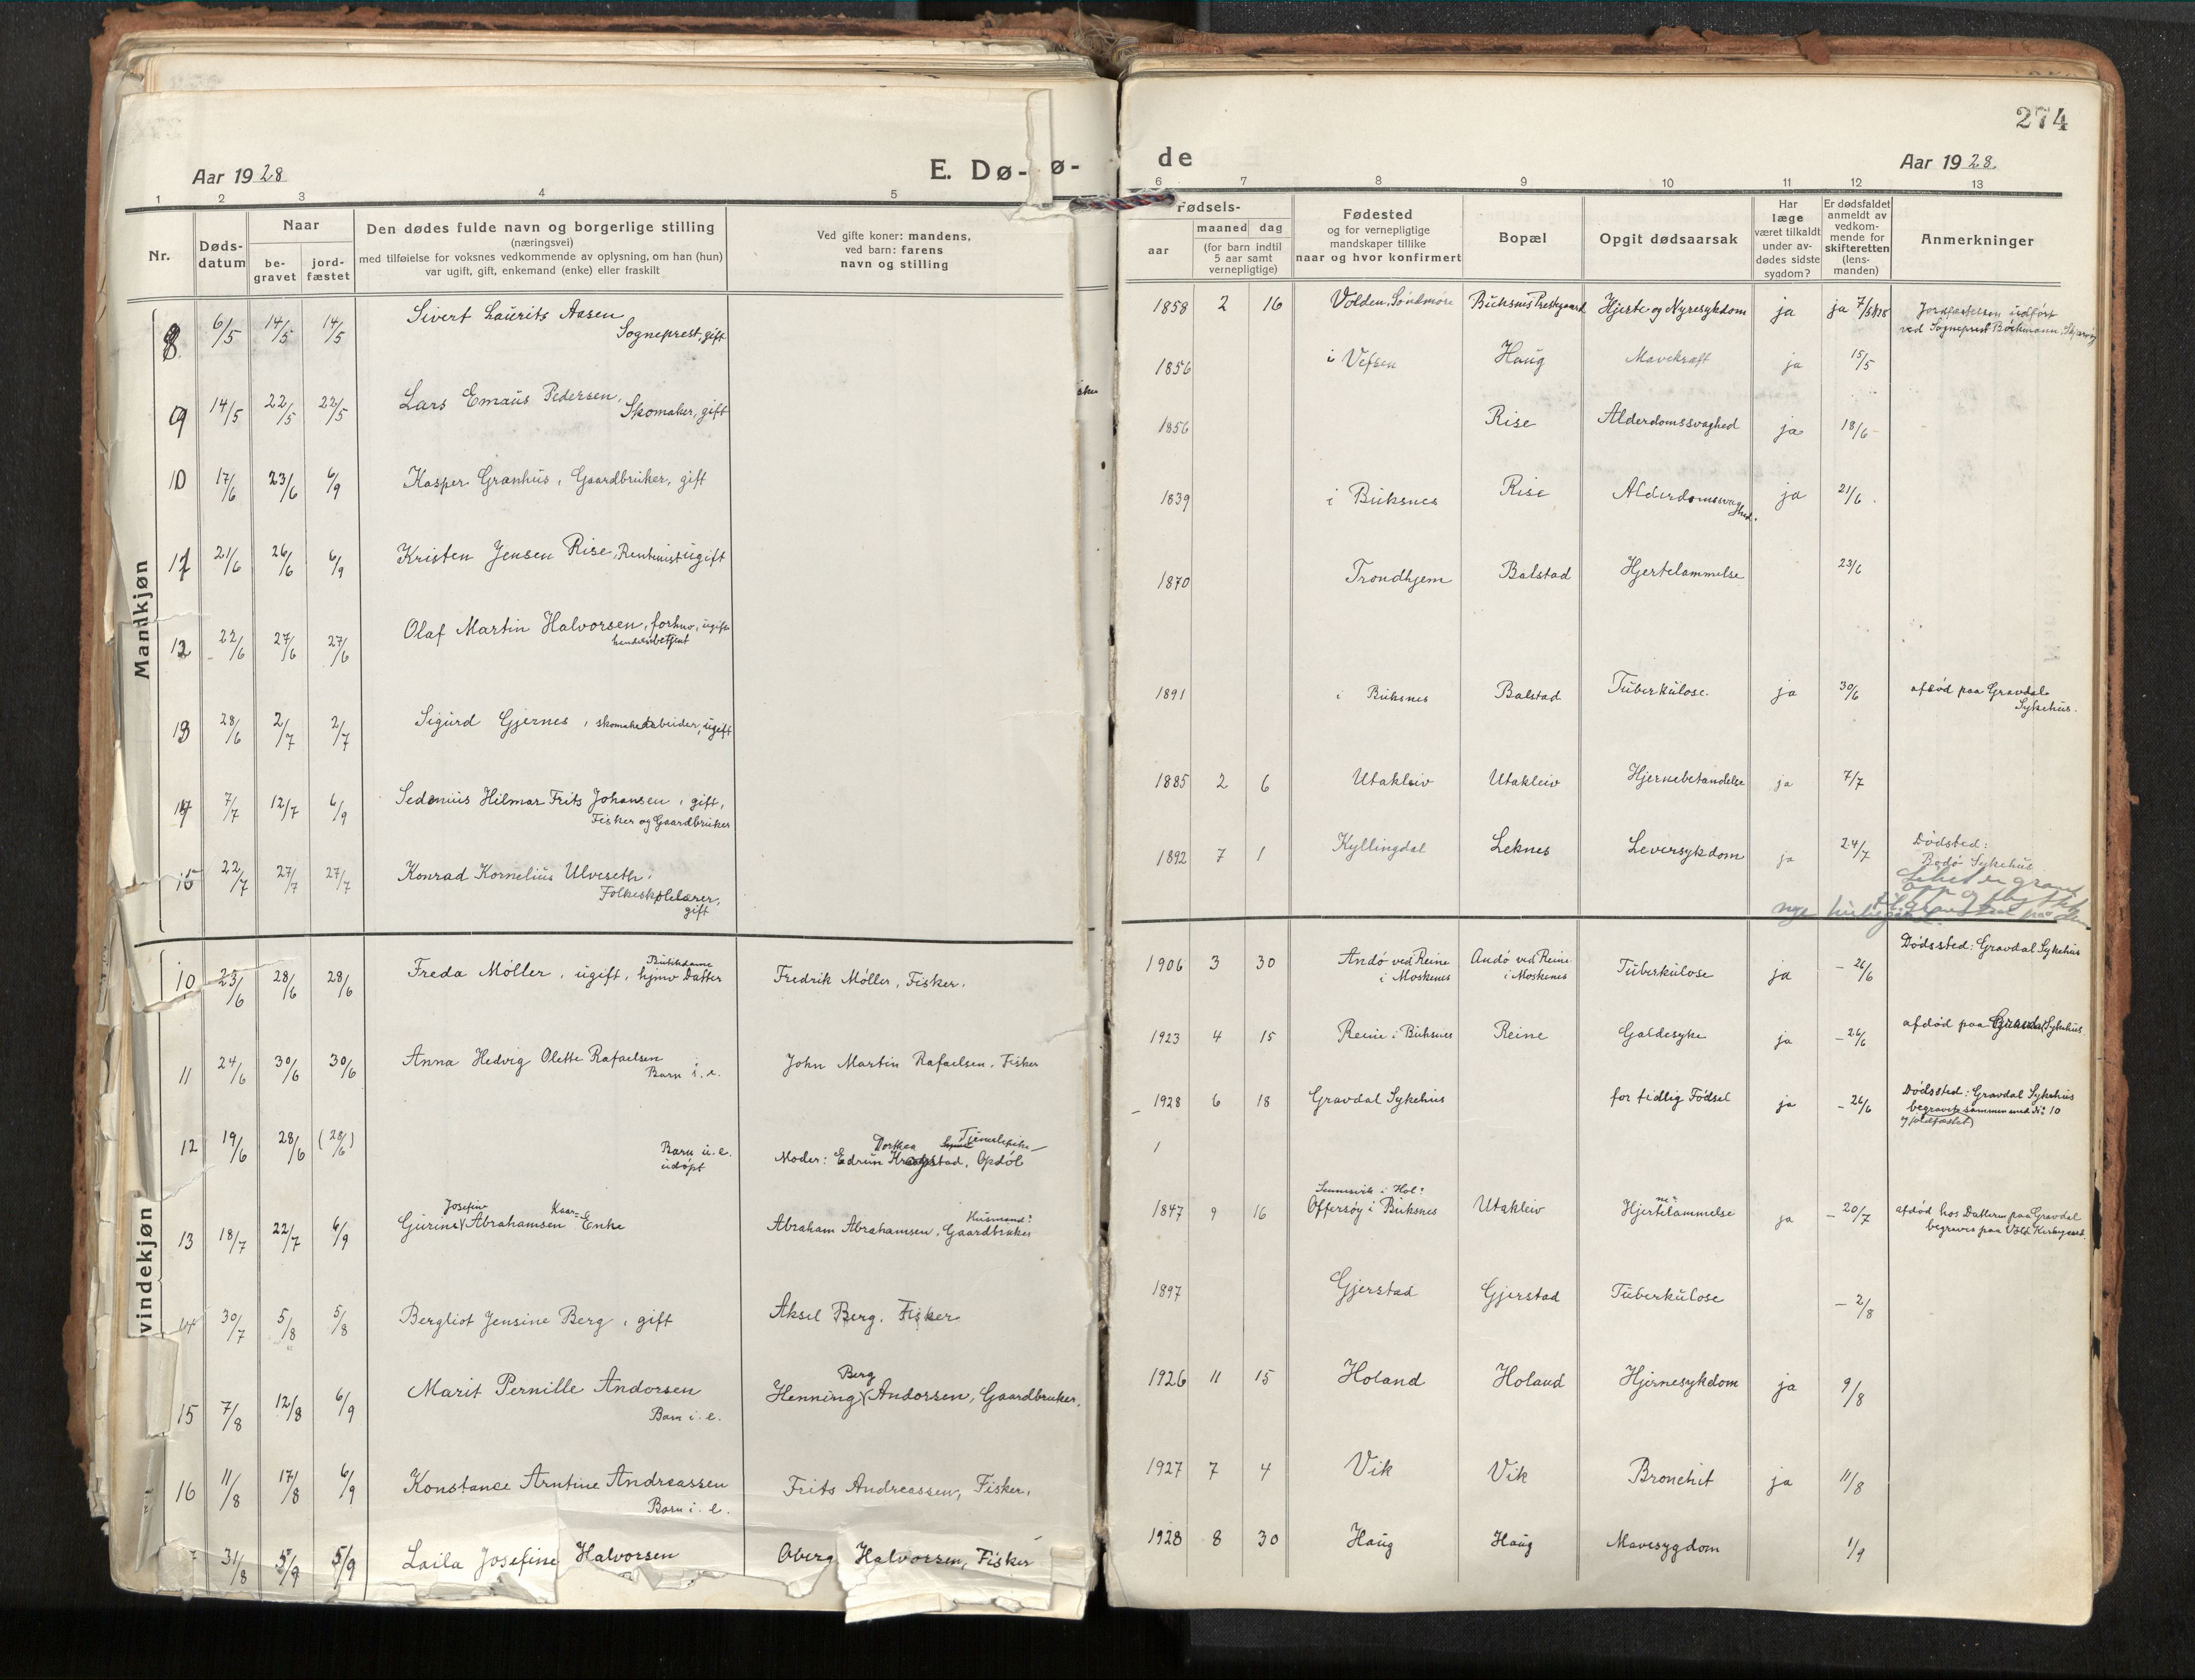 274
Aar 1928
E. Dø-
ø-
de
Aar 1928.
1 2 3 4 5
6 7 8 9 10 11 12 13
Nr.
Døds-
datum
Naar
be-
gravet
jord-
fæstet
Den dødes fulde navn og borgerlige stilling
(næringsvei)
med tilføielse for voksnes vedkommende av oplysning, om han (hun)
var ugift, gift, enkemand (enke) eller fraskilt
Ved gifte koner: mandens,
ved barn: farens
navn og stilling
Fødsels-
aar
maaned dag
(for barn indtil
5 aar samt
vernepligtige)
Fødested
og for vernepligtige
mandskaper tillike
naar og hvor konfirmert
Bopæl
Opgit dødsaarsak
Har
læge
været tilkaldt
under av-
dødes sidste
sygdom?
Er dødsfaldet
anmeldt av
vedkom-
mende for
skifteretten
(lens-
manden)
Anmerkninger
Mandkjøn
8 6/5 14/5 14/5 Sivert Laurits Aasen
Sogneprest, gift
9 14/5 22/5 22/5 Lars Emaus Pedersen,
Skomaker, gift
10 17/6 23/6 6/9 Kasper Granhus, Gaardbruker, gift
11 21/6 26/6 6/9 Kristen Jensen Rise, Rentenist ugift
12 22/6 27/6 27/6 Olaf Martin Halvorsen, forhv, ugift
handelsbetjent
13 28/6 2/7 2/7 Sigurd Gjernes, skomakerarbeider, ugift
14 7/7 12/7 6/9 Sedenius Hilmar Frits Johansen, gift,
Fisker og Gaardbruker
15 22/7 27/7 27/7 Konrad Kornelius Ulveseth,
Folkeskolelærer,
gift
vindekjøn
10 23/6 28/6 28/6 Freda Møller, ugift, hjmv Datter Fredrik Møller, Fisker.
Butikdame
11 24/6 30/6 30/6 Anna Hedvig Olette Rafaelsen
Barn i. e. John Martin Rafaelsen, Fisker
12 19/6 28/6 (28/6) Barn u. e.
udøpt
Dorthea Tjenestepike
Moder: Edrun stad, Opdøl
Josefine Kaar-
13 18/7 22/7 6/9 Gurine Abrahamsen Enke
Husmand:
Abraham Abrahamsen, Gaardbruker
14 30/7 5/8 5/8 Bergliot Jensine Berg, gift Aksel Berg, Fisker
15 7/8 12/8 6/9 Marit Pernille Andorsen
Barn i. e.
Berg
Henning Andorsen, Gaardbruker.
16 11/8 17/8 6/9 Konstance Arntine Andreassen
Barn i. e. Frits Andreassen, Fisker.
31/8 5/9 5/9 Laila Josefine Halvorsen Oberg Halvorsen, Fisker
1858 2 16 Volden, Söndmöre Buksnes Prestegaard Hjerte og Nyresykdom ja ja 7/5 1928 Jordfæstelsen udført
ved Sogneprest Böckmann,
1856 i Vefsen Haug Mavekræft ja 15/5
1856 Rise Alderdomssvaghed ja 18/6
1839 i Buksnes Rise Alderdomssvaghed. ja 21/6
1870 Trondhjem Balstad Hjertelammelse 23/6
1891 i Buksnes Balstad Tuberkulose. ja 30/6 afdød paa Gravdal
Sykehus.
1885 2 6 Utakleiv Utakleiv Hjernebetændelse ja 7/7
1892 7 1 Kyllingdal Leknes Leversykdom ja 24/7 Dödsted:
Bodø Sykehus.
1906 3 30 Andö ved Reine
i Moskenes
Andö ved Reine
i Moskenes Tuberkulose ja - 26/6 Dødssted: Gravdal Sykehus
1923 4 15 Reine i Buksnes Reine Galdesyke ja - 26/6 afdød paa Gravdal Sykehus
1928 6 18 Gravdal Sykehus for tidlig Födsel ja - 26/6 Dødssted: Gravdal Sykehus
begravet sammen med Nº 10
1847 9 16 Sennesvik i Hol:
Offersøy i Buksnes Utakleiv Hjertelammelse ja - 20/7 afdød hos Datteren paa Gravdal
begraves paa Vold Kirkegaard.
1897 Gjerstad Gjerstad Tuberkulose - 2/8
1926 11 15 Holand Holand Hjernesykdom ja 9/8
1927 7 4 Vik Vik Bronchit ja 11/8
1928 8 30 Haug Haug Mavesygdom 1/9